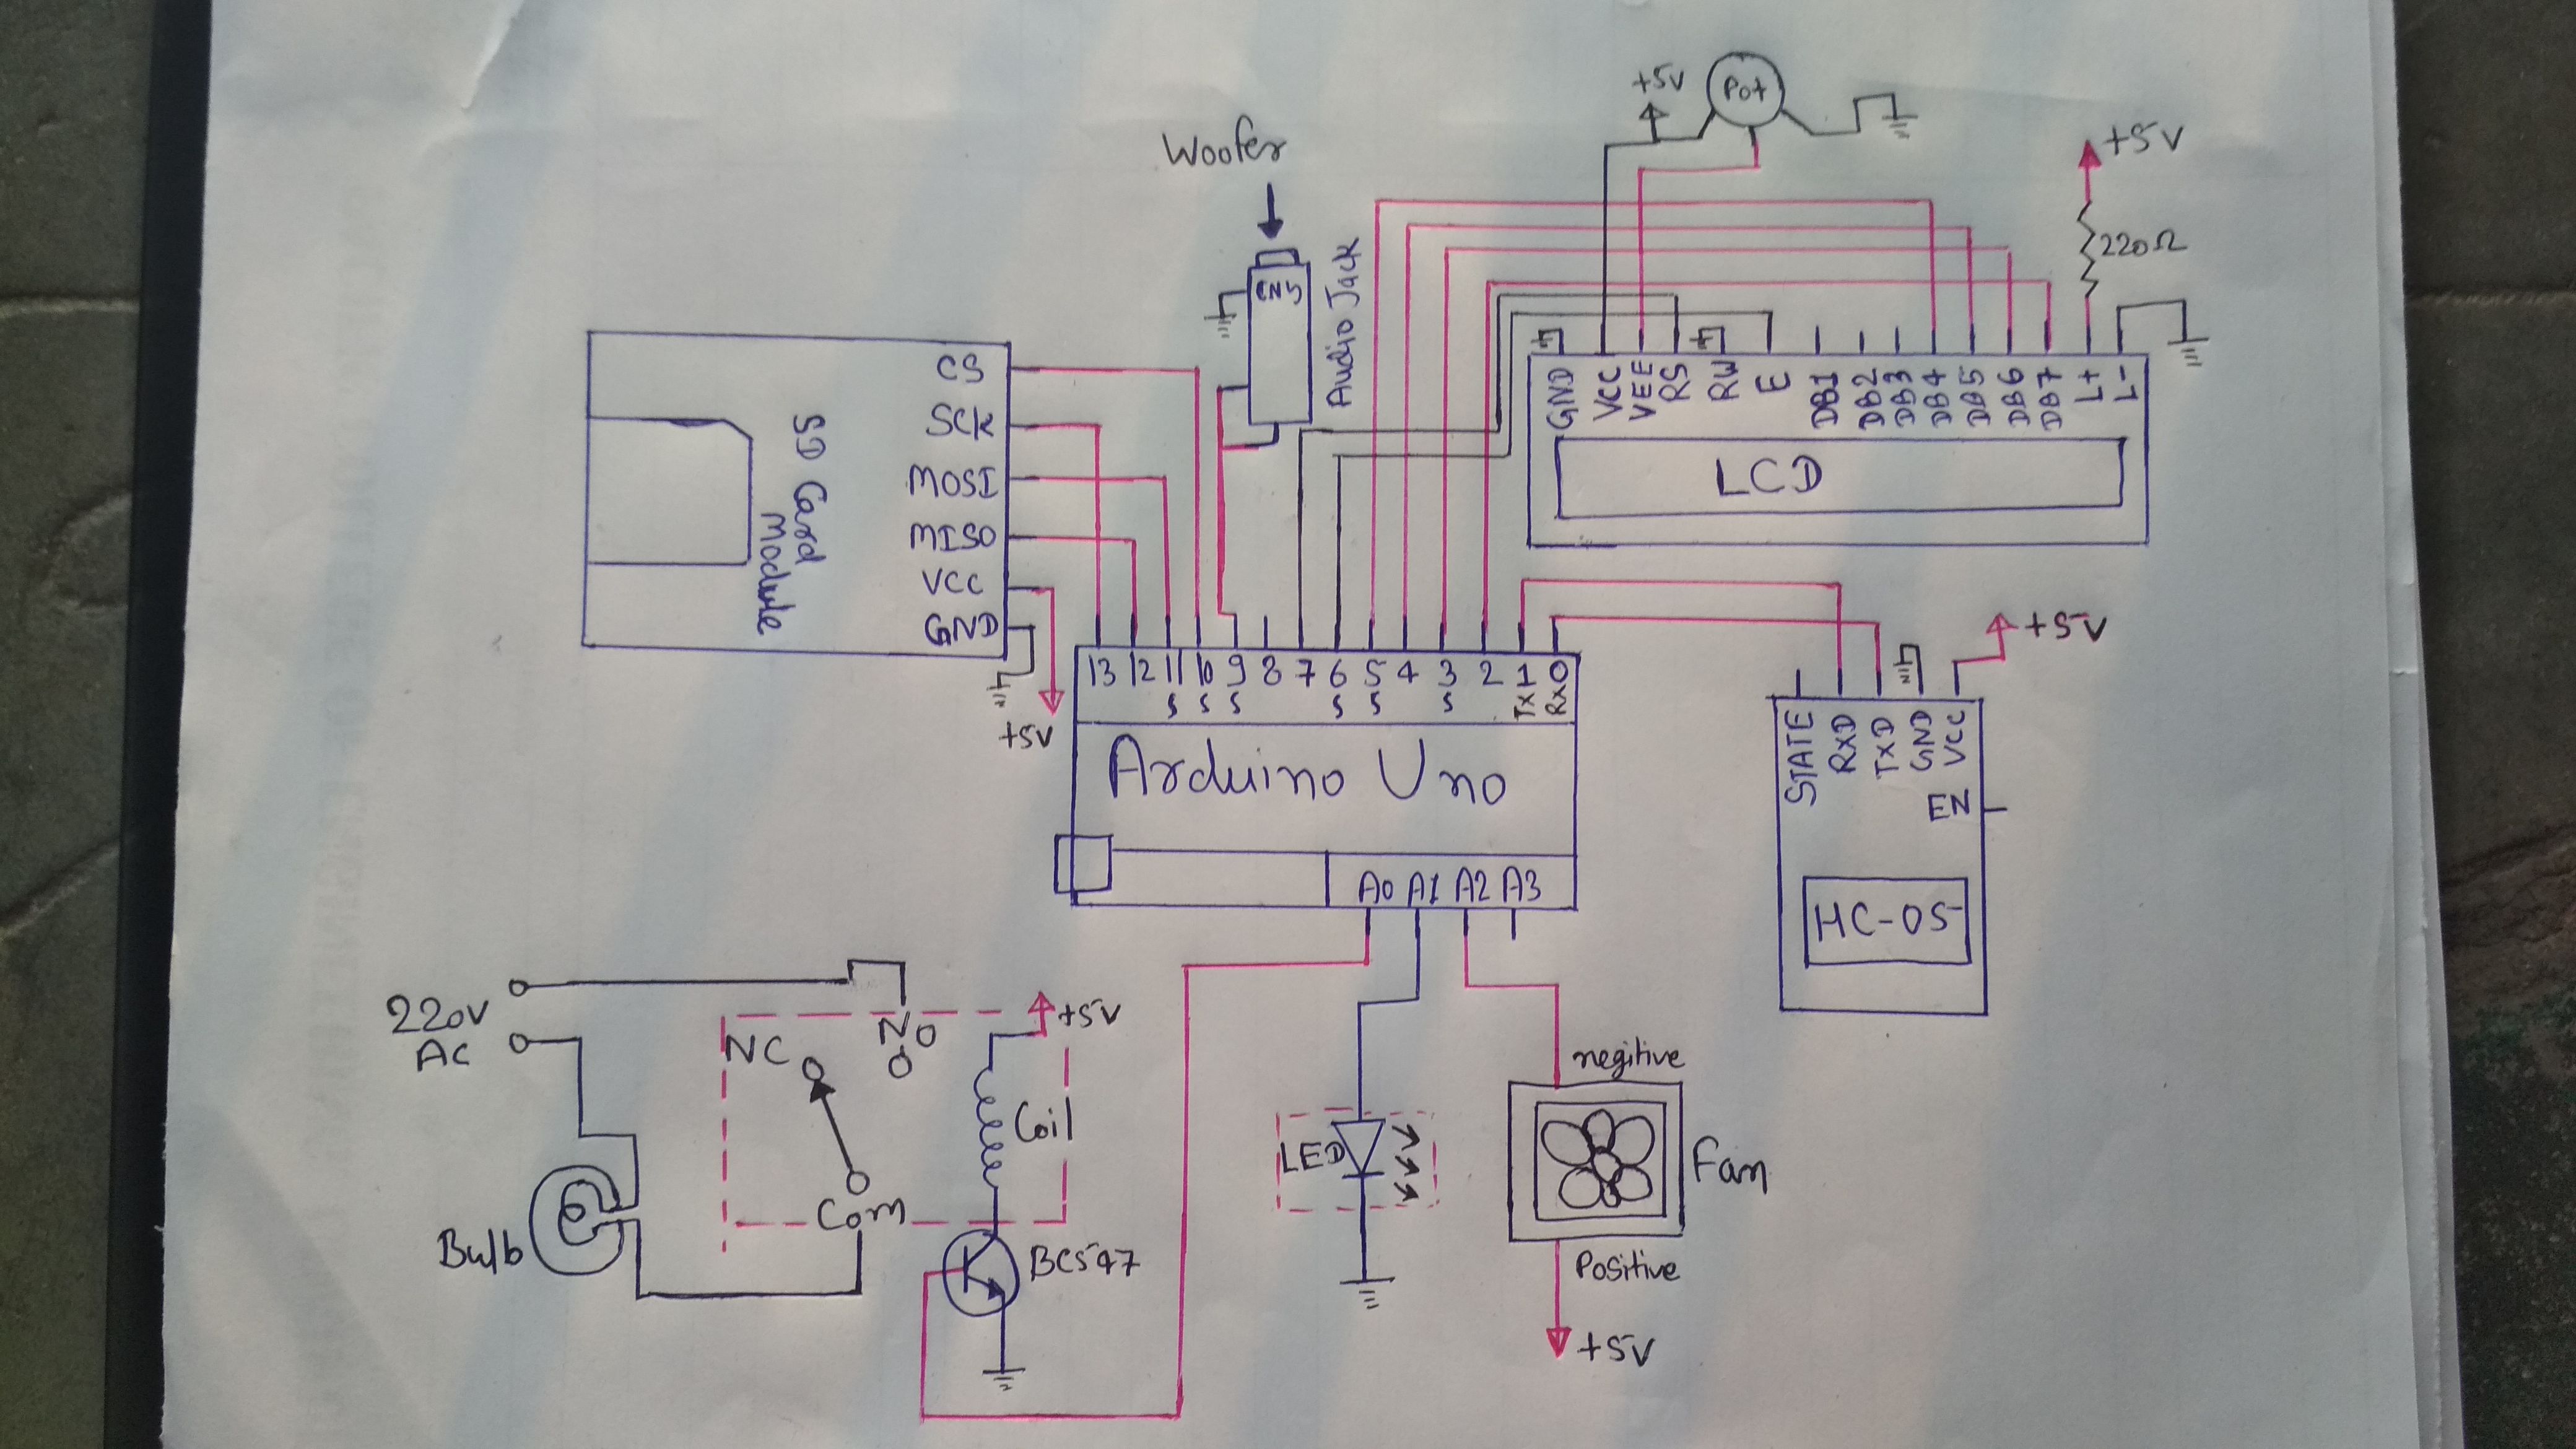 +5V
Pot
Woofer
+5V
220Ω
Audio Jack
CS
SCK
MOSI
MISO
VCC
GND
SD Card
Module
+5V
GND
VCC
VEE
RS
RW
E
DB1
DB2
DB3
DB4
DB5
DB6
DB7
L+
L-
LCD
13 12 11 10 9 8 7 6 5 4 3 2 1 0
S S S S S S Tx Rx
Arduino Uno
A0 A1 A2 A3
+5V
STATE
RXD
TXD
GND
VCC
EN
HC-05
220V
AC
NC
NO
+5V
Coil
Com
Bulb
BC547
LED
negitive
Fan
Positive
+5V